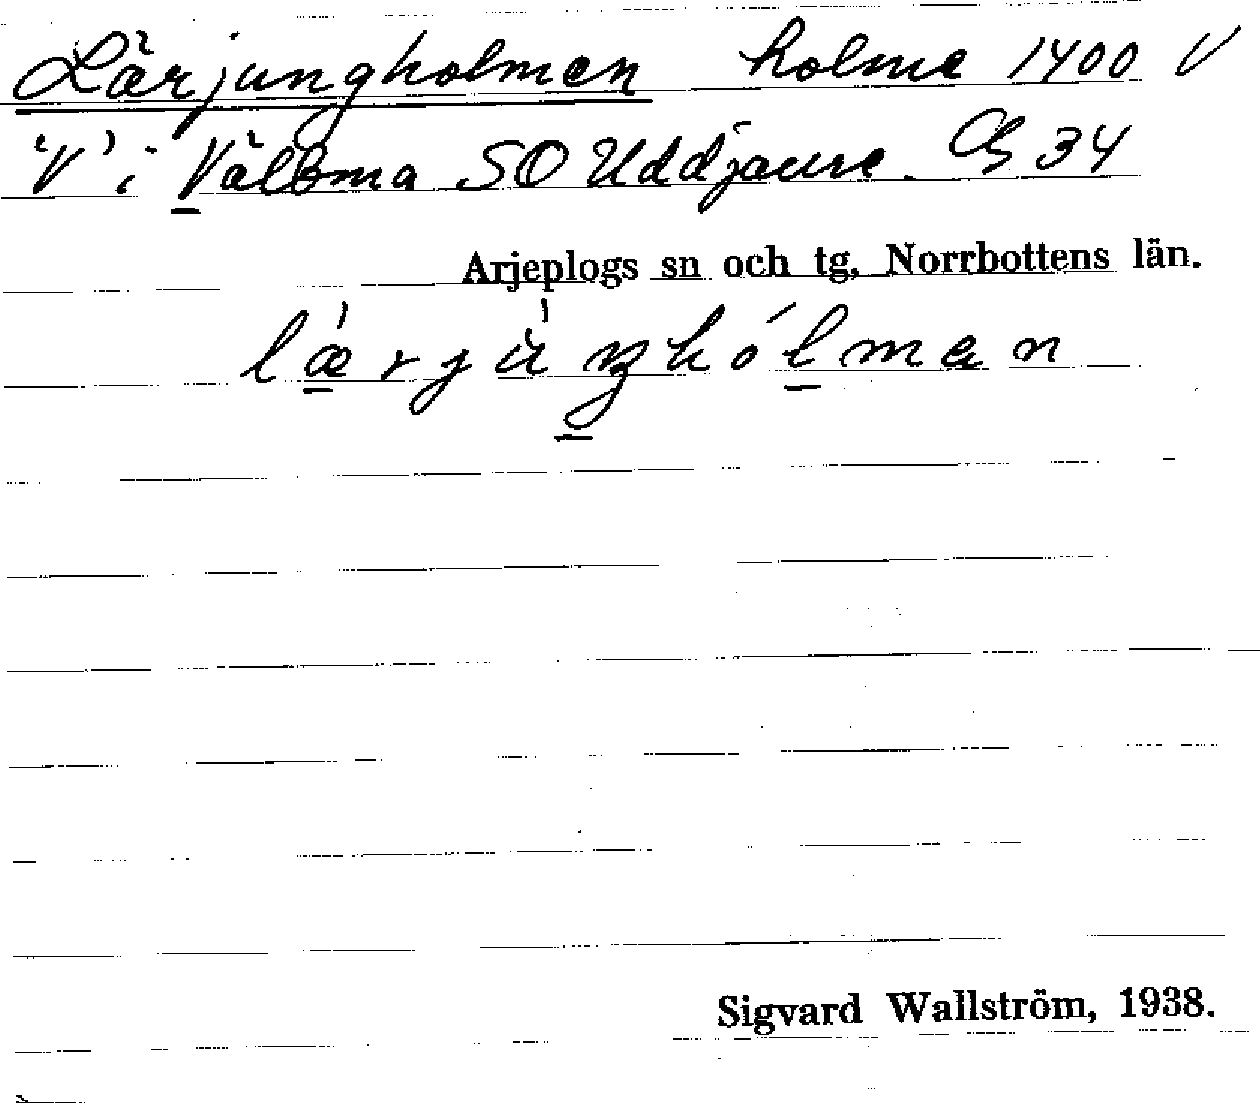 Lärjungholmen holme 1400 V
"V" i Välbma SO Uddjaure. G 34
Arjeplogs sn och tg. Norrbottens län.
lærjùŋhólmen
Sigvard Wallström, 1938.